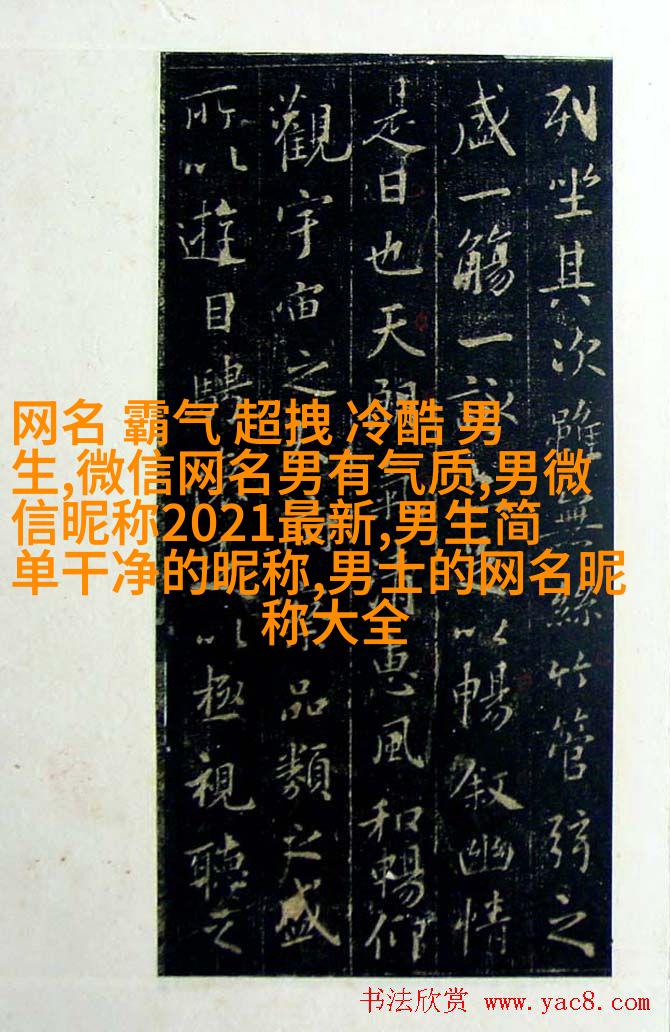 列坐其次雖無絲竹管弦之
盛一觴一詠以暢叙幽情
是日也天朗氣清惠風和暢仰
觀宇宙之察品類之盛
所以遊目騁以極視聽之
网名 霸气 超拽 冷酷 男
生,微信网名男有气质,男微
信昵称2021最新,男生简
单干净的昵称,男士的网名昵
称大全
书法欣赏 www.yac8.com